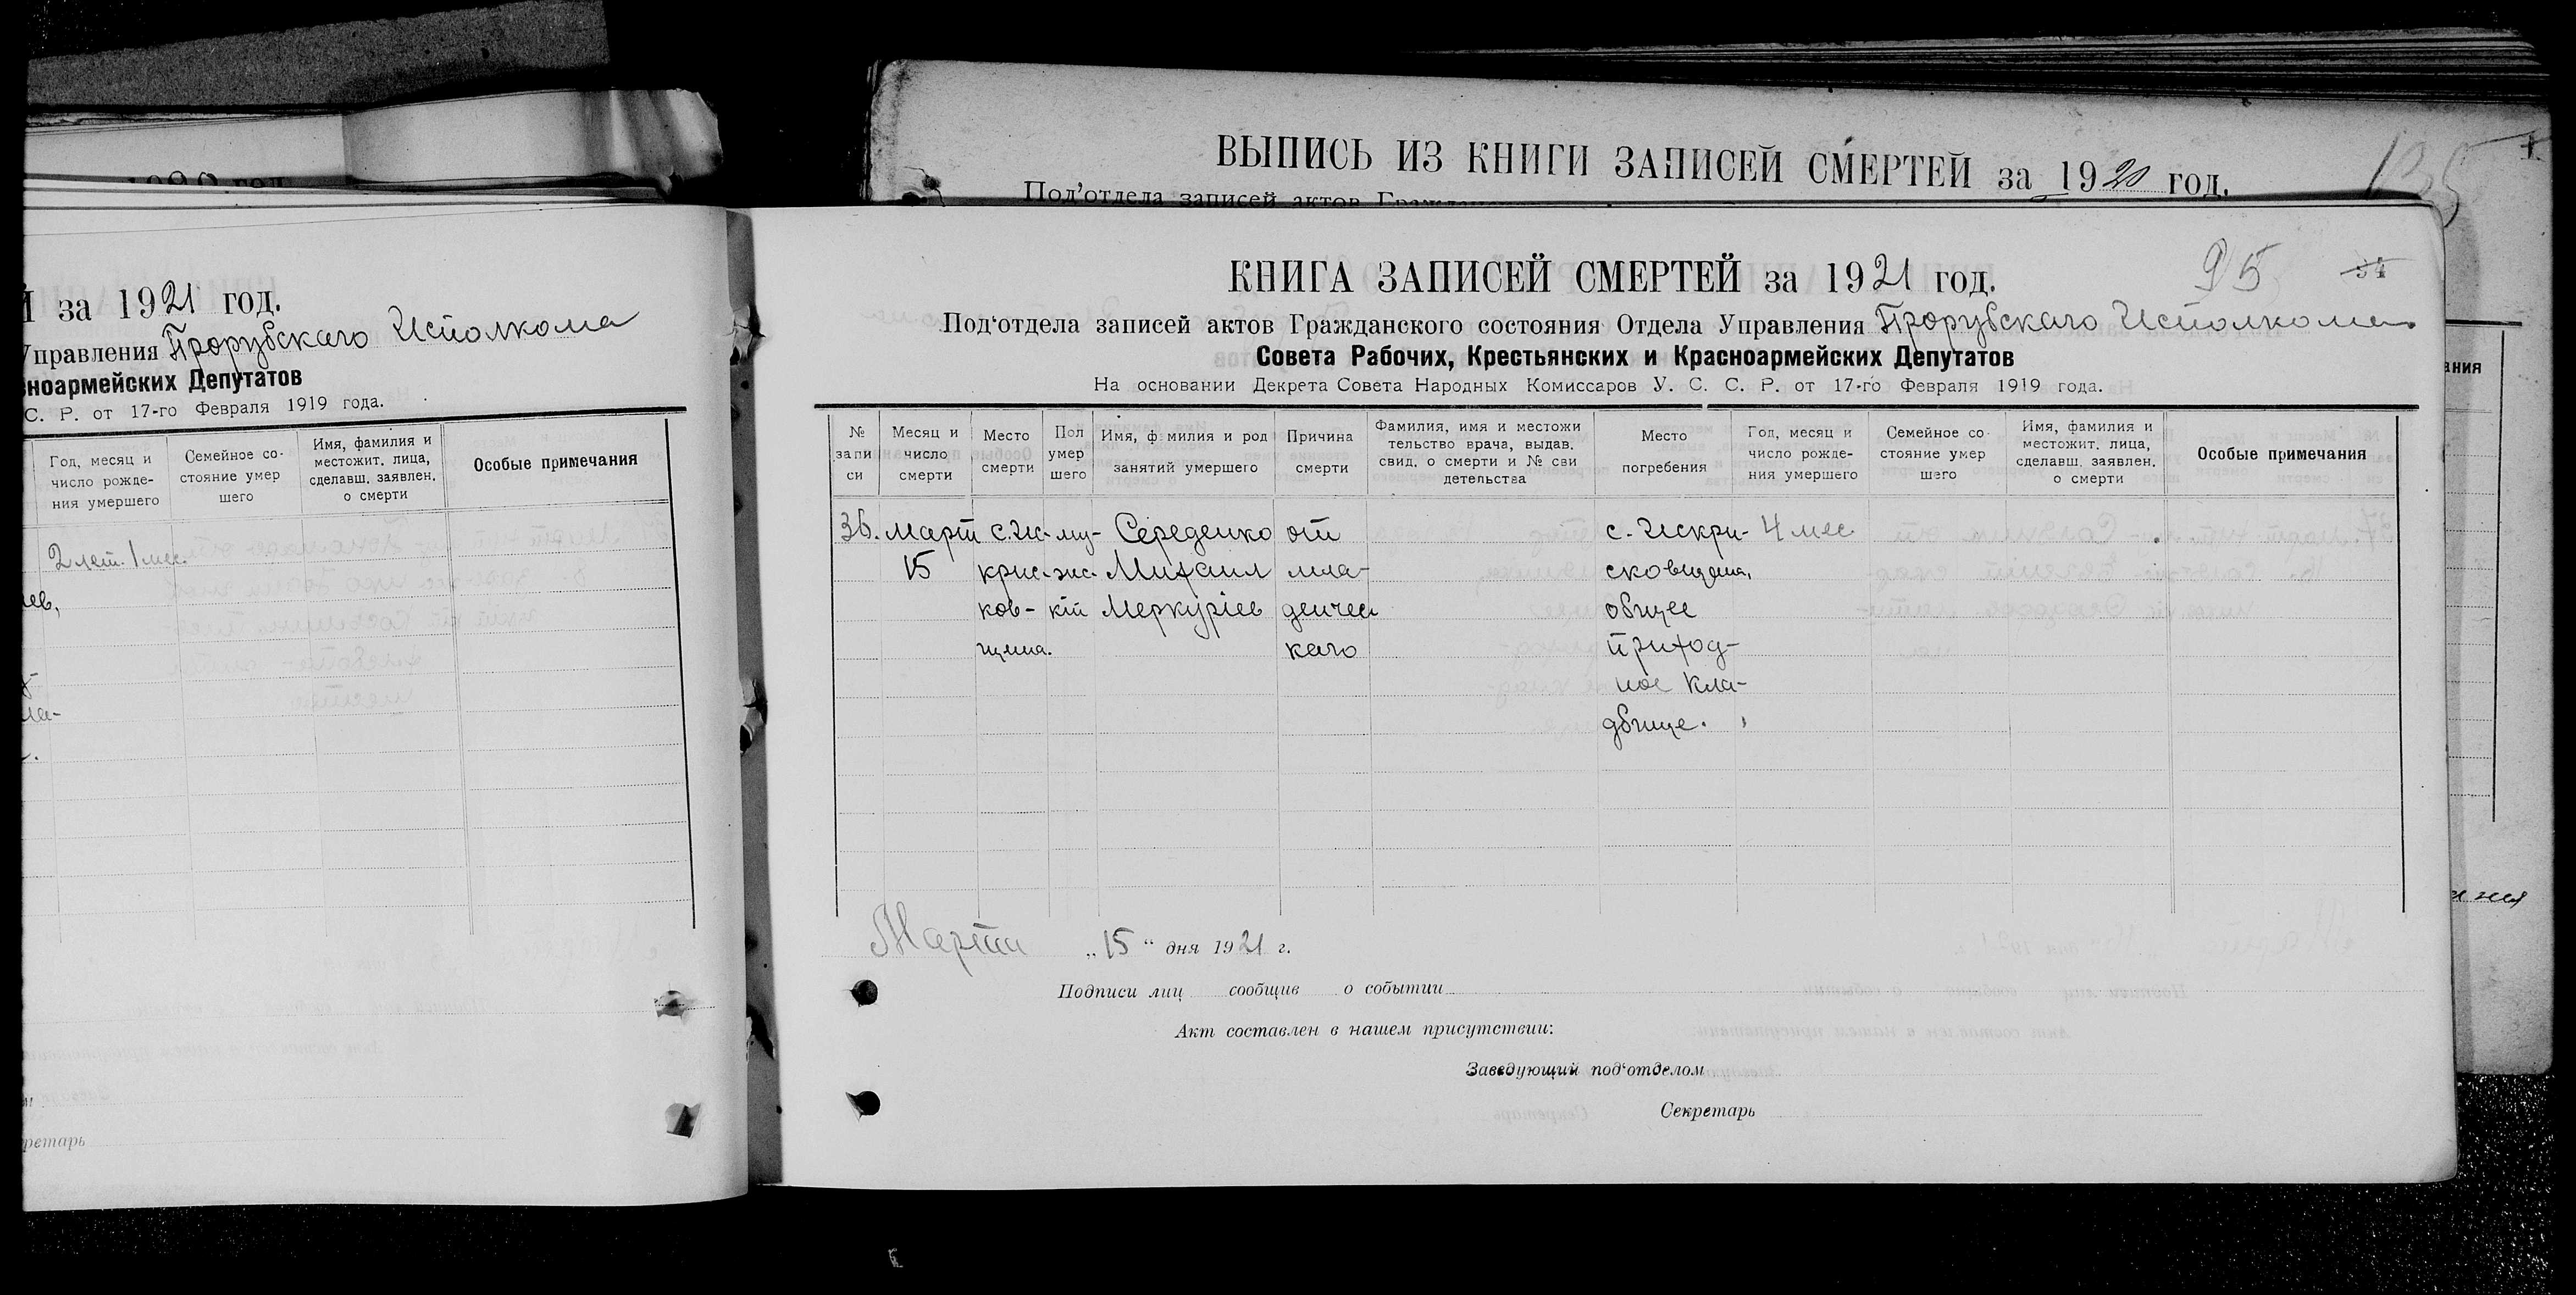 1920 год.
ВЫПИСЬ ИЗ КНИГИ ЗАПИСЕЙ СМЕРТЕЙ за 1920 год.
135
Под'отдела записей актов
Й за 1921 год.
Управления Прорубскаго Исполкома
сноармейских Депутатов
С. Р. от 17-го Февраля 1919 года.
Год, месяц и число рожде-ния умершего
Семейное со-стояние умер шего
Имя, фамилия и местожит. лица, сделавш. заявлен. о смерти
Особые примечания
2 лет. 1 мес.
ретарь
КНИГА ЗАПИСЕЙ СМЕРТЕЙ за 1921 год.
95
34
Под'отдела записей актов Гражданского состояния Отдела Управления Прорубскаго Исполкома
Совета Рабочих, Крестьянских и Красноармейских Депутатов
На основании Декрета Совета Народных Комиссаров У. С. С. Р. от 17-го Февраля 1919 года.
№ запи си
Месяц и число смерти
Место смерти
Пол умер шего
Имя, ф милия и род занятий умершего
Причина смерти
Фамилия, имя и местожи тельство врача, выдав. свид. о смерти и № сви детельства
Место погребения
Год, месяц и число рожде-ния умершего
Семейное со стояние умер шего
Имя, фамилия и местожит. лица, сделавш. заявлен. о смерти
Особые примечания
36. март с. Ис- му- Середенко от с. Искри- 4 мес.
15 крис- жс- Михаил мла-
ков- кій Меркуріев денчес общее
щина. каго приход-
ное кла-
дбище.
Марта „15“ дня 1921 г.
Подписи лиц сообщив о событии
Акт составлен в нашем присутствии:
Заведующий под'отделом
Секретарь